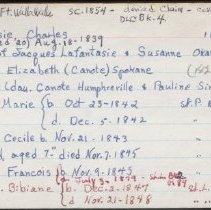 Ft. Walla Walla SC-1854 - denied Chain -
DLC Bk-4
sie Charles
'20) Aug. 18-1839
of Jacques Lafantasie & Susanne Oka
Elizabeth (Canote) Spokane
(dau. Canote Humpherville & Pauline Si
Marie b. Oct 23-1842 St. P
d. Dec. 5-1842
Cecile b. Nov. 21-1843
aged 7- died Nov. 7-1845
Francois b. Nov. 9-1845
d. July 3-1879 -
Bibiane b. Dec. 2-1847 St. L
d. Nov. 21-1848